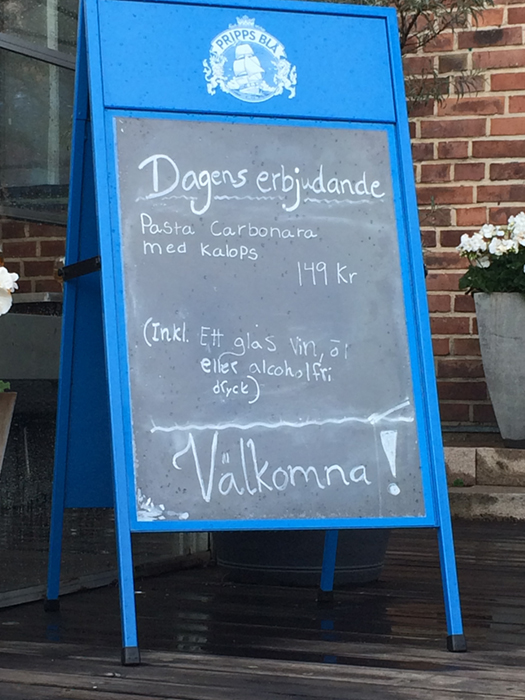 PRIPPS BLÅ
Dagens erbjudande
Pasta Carbonara
med Kalops
149 Kr
(Inkl. Ett glas vin, öl
eller alcoholfri
dryck)
Välkomna!